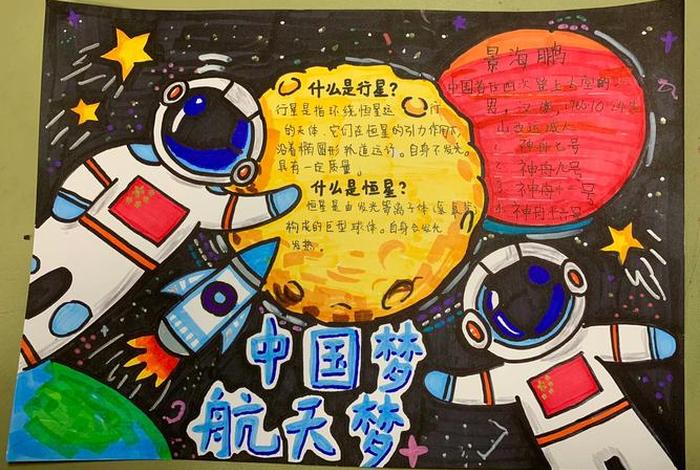 什么是行星?
行星是指环绕恒星运行
的天体,它们在恒星的引力作用下,
沿着椭圆形轨道运行。自身不发光。
具有一定质量。
什么是恒星?
恒星是由发光等离子体
构成的巨型球体。自身会发光
发热。
景海鹏
中国首位四次登上太空的
男,汉族,1966.10
山西运城人
1. 神舟七号
2. 神舟九号
3. 神舟十一号
4. 神舟十六号
中国梦
航天梦